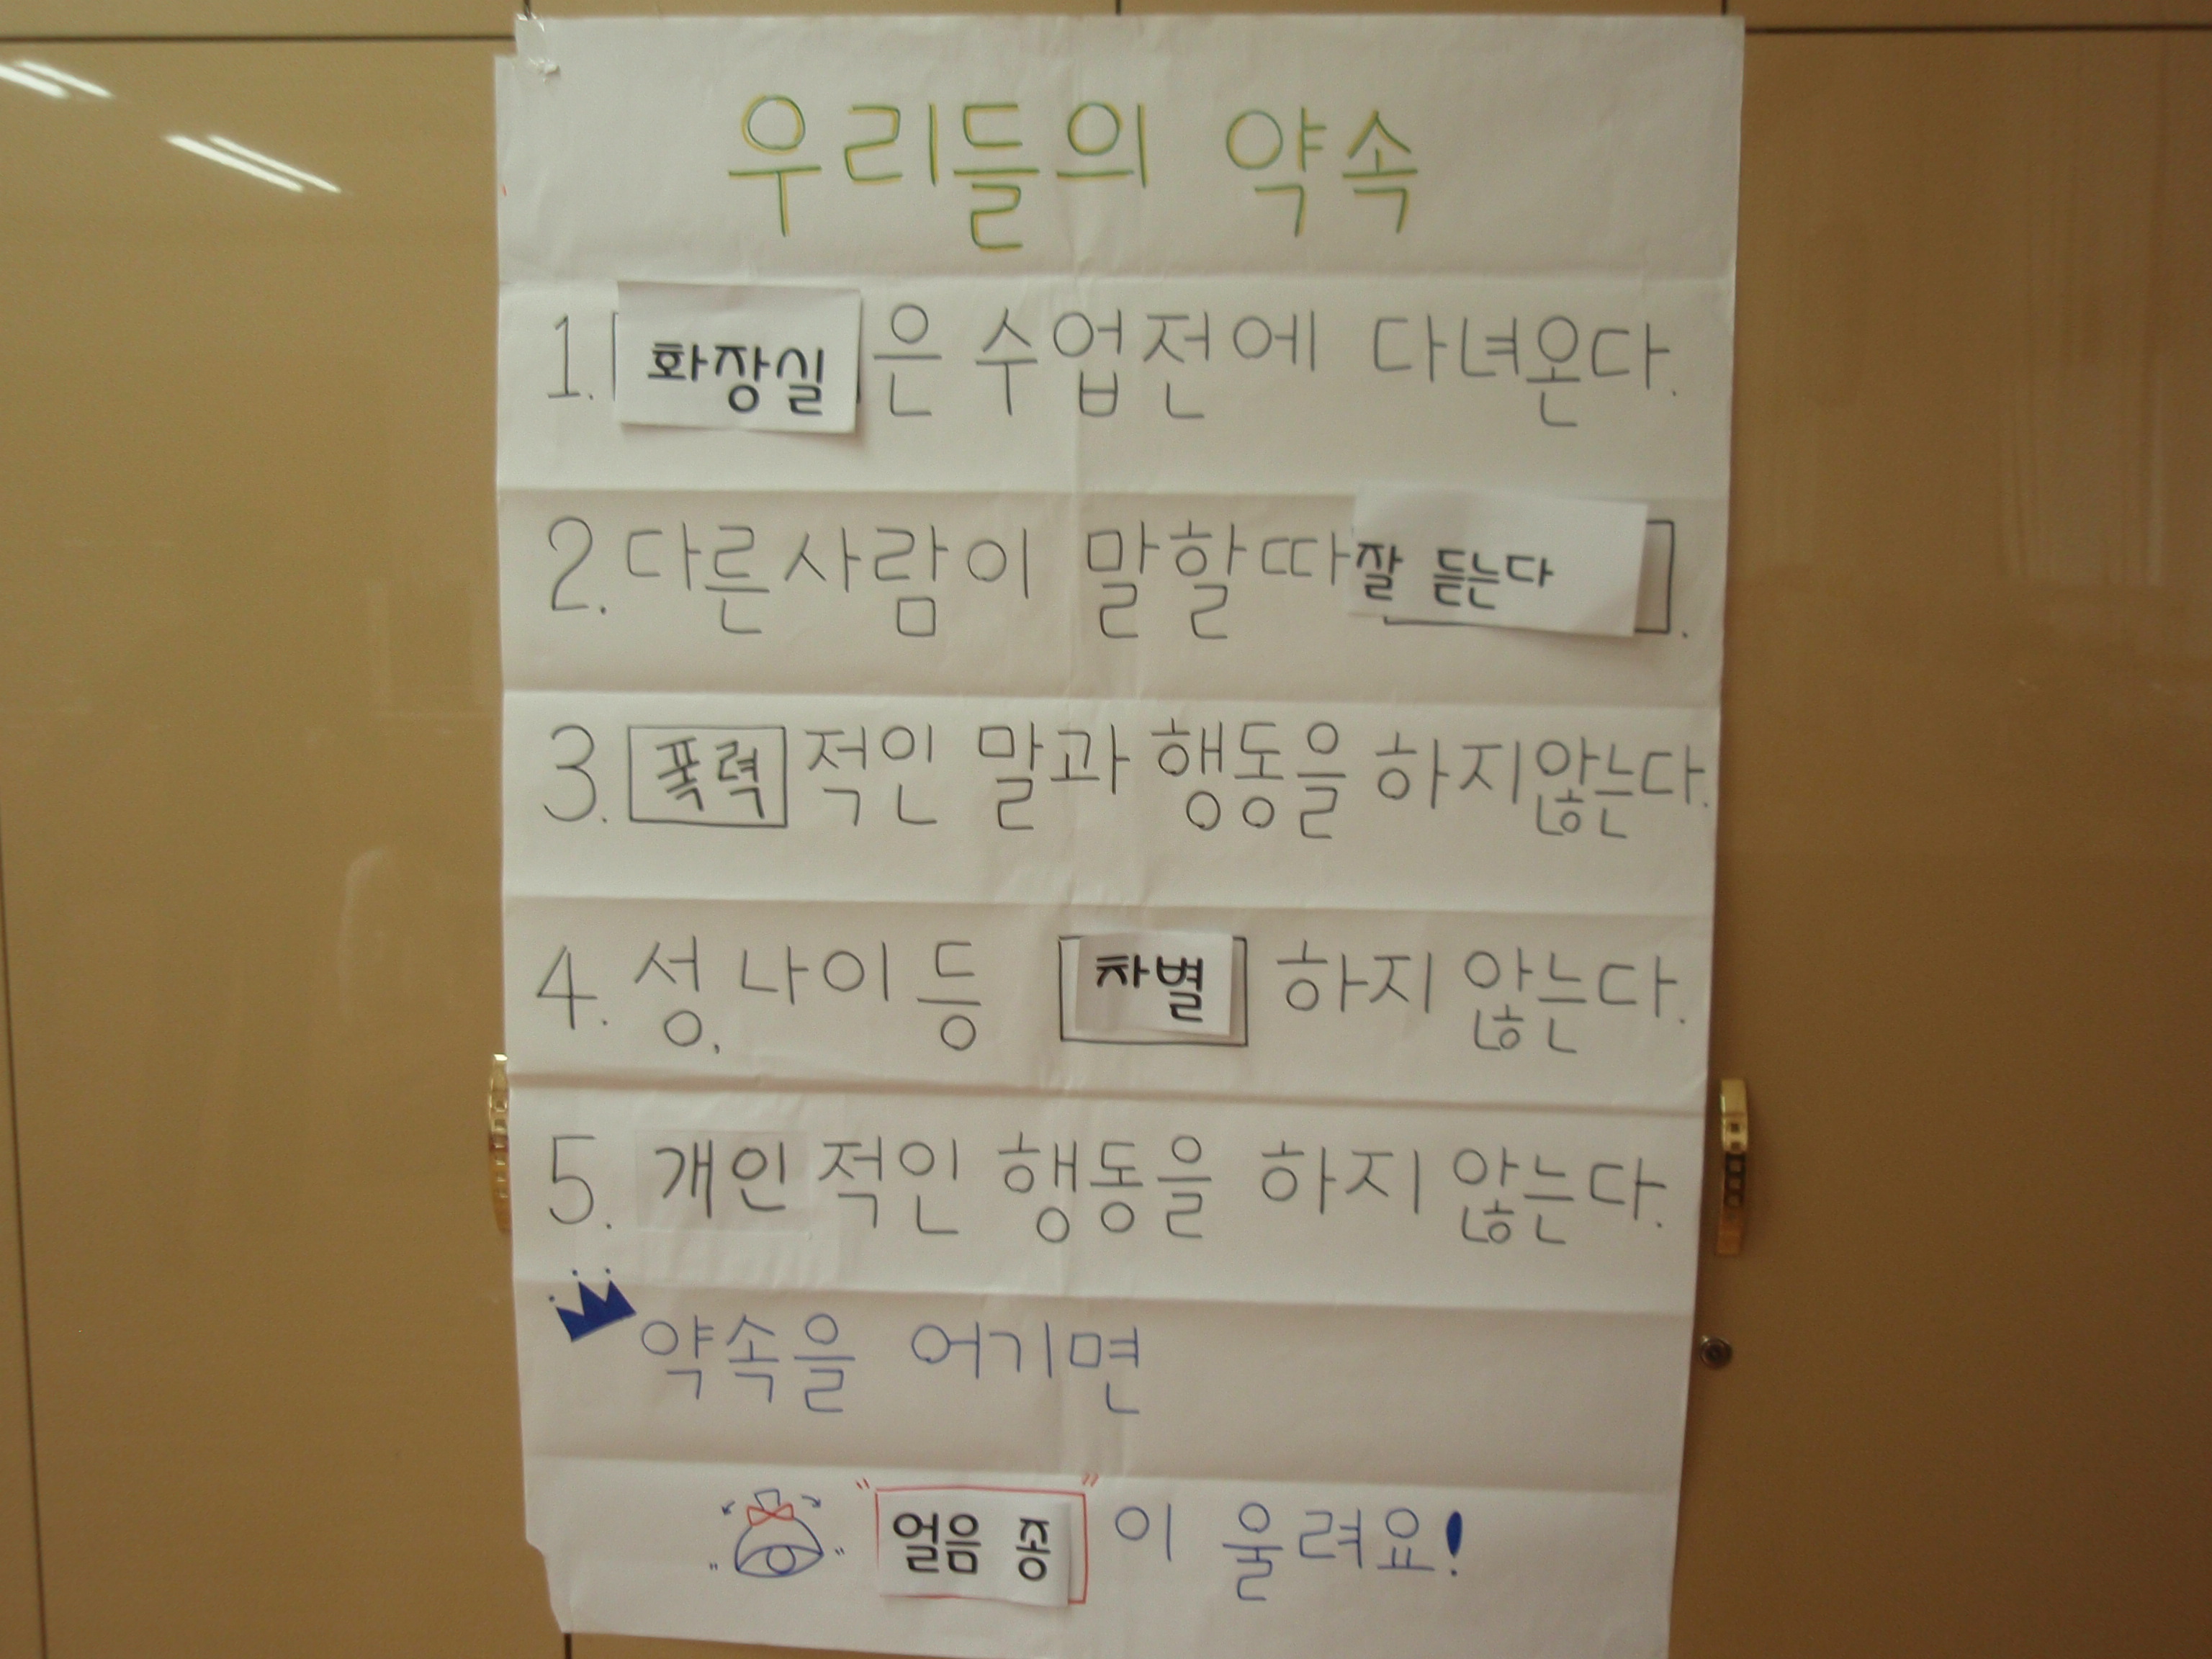 우리들의 약속
1. 화장실 은 수업전에 다녀온다.
2. 다른사람이 말할따 잘 듣는다.
3. 폭력 적인 말과 행동을 하지않는다.
4. 성, 나이 등 차별 하지 않는다.
5. 개인적인 행동을 하지 않는다.
약속을 어기면
"얼음 종" 이 울려요!